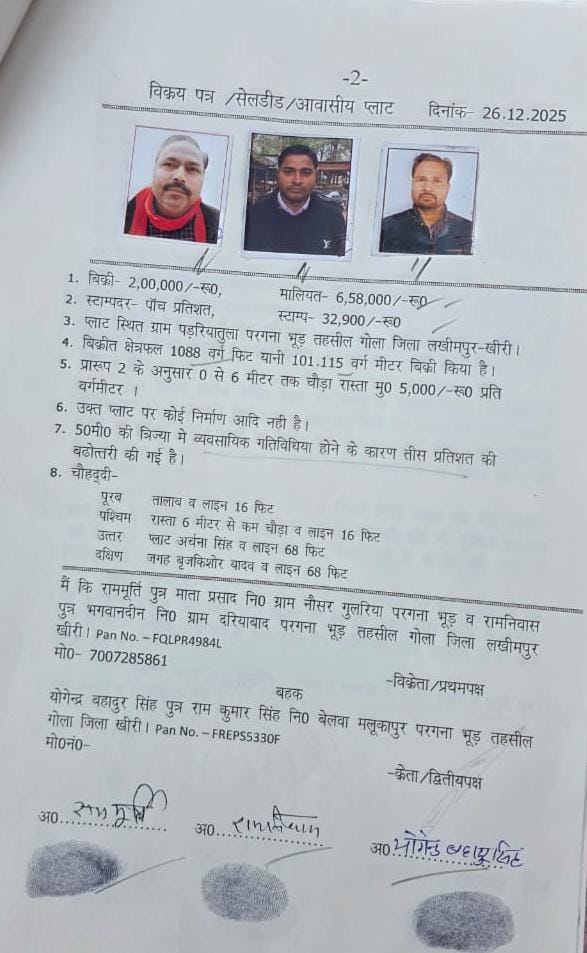 -2-
विक्रय पत्र /सेलडीड/आवासीय प्लाट दिनांक- 26.12.2025
1. बिक्री- 2,00,000/-रू0, मालियत- 6,58,000/-रू0
2. स्टाम्पदर- पॉच प्रतिशत, स्टाम्प- 32,900/-रू0
3. प्लाट स्थित ग्राम पड़रियातुला परगना भूड़ तहसील गोला जिला लखीमपुर-खीरी।
4. बिक्रीत क्षेत्रफल 1088 वर्ग फिट यानी 101.115 वर्ग मीटर बिक्री किया है।
5. प्रारूप 2 के अनुसार 0 से 6 मीटर तक चौड़ा रास्ता मु0 5,000/-रू0 प्रति
वर्गमीटर ।
6. उक्त प्लाट पर कोई निर्माण आदि नही है।
7. 50मी0 की त्रिज्या मे व्यवसायिक गतिविधिया होने के कारण तीस प्रतिशत की
बढोत्तरी की गई है।
8. चौहद्दी-
पूरब तालाब व लाइन 16 फिट
पश्चिम रास्ता 6 मीटर से कम चौड़ा व लाइन 16 फिट
उत्तर प्लाट अर्चना सिंह व लाइन 68 फिट
दक्षिण जगह बृजकिशोर यादव व लाइन 68 फिट
मैं कि राममूर्ति पुत्र माता प्रसाद नि0 ग्राम नौसर गुलरिया परगना भूड़ व रामनिवास
पुत्र भगवानदीन नि0 ग्राम दरियाबाद परगना भूड़ तहसील गोला जिला लखीमपुर
खीरी। Pan No. – FQLPR4984L
मो0- 7007285861
-विक्रेता/प्रथमपक्ष
बहक
योगेन्द्र बहादुर सिंह पुत्र राम कुमार सिंह नि0 बेलवा मलूकापुर परगना भूड़ तहसील
गोला जिला खीरी। Pan No. – FREPS5330F
मो0नं0-
-क्रेता/द्वितीयपक्ष
अ0..राममूर्ति
अ0..
अ0..योगेन्द्र बहादुर सिंह